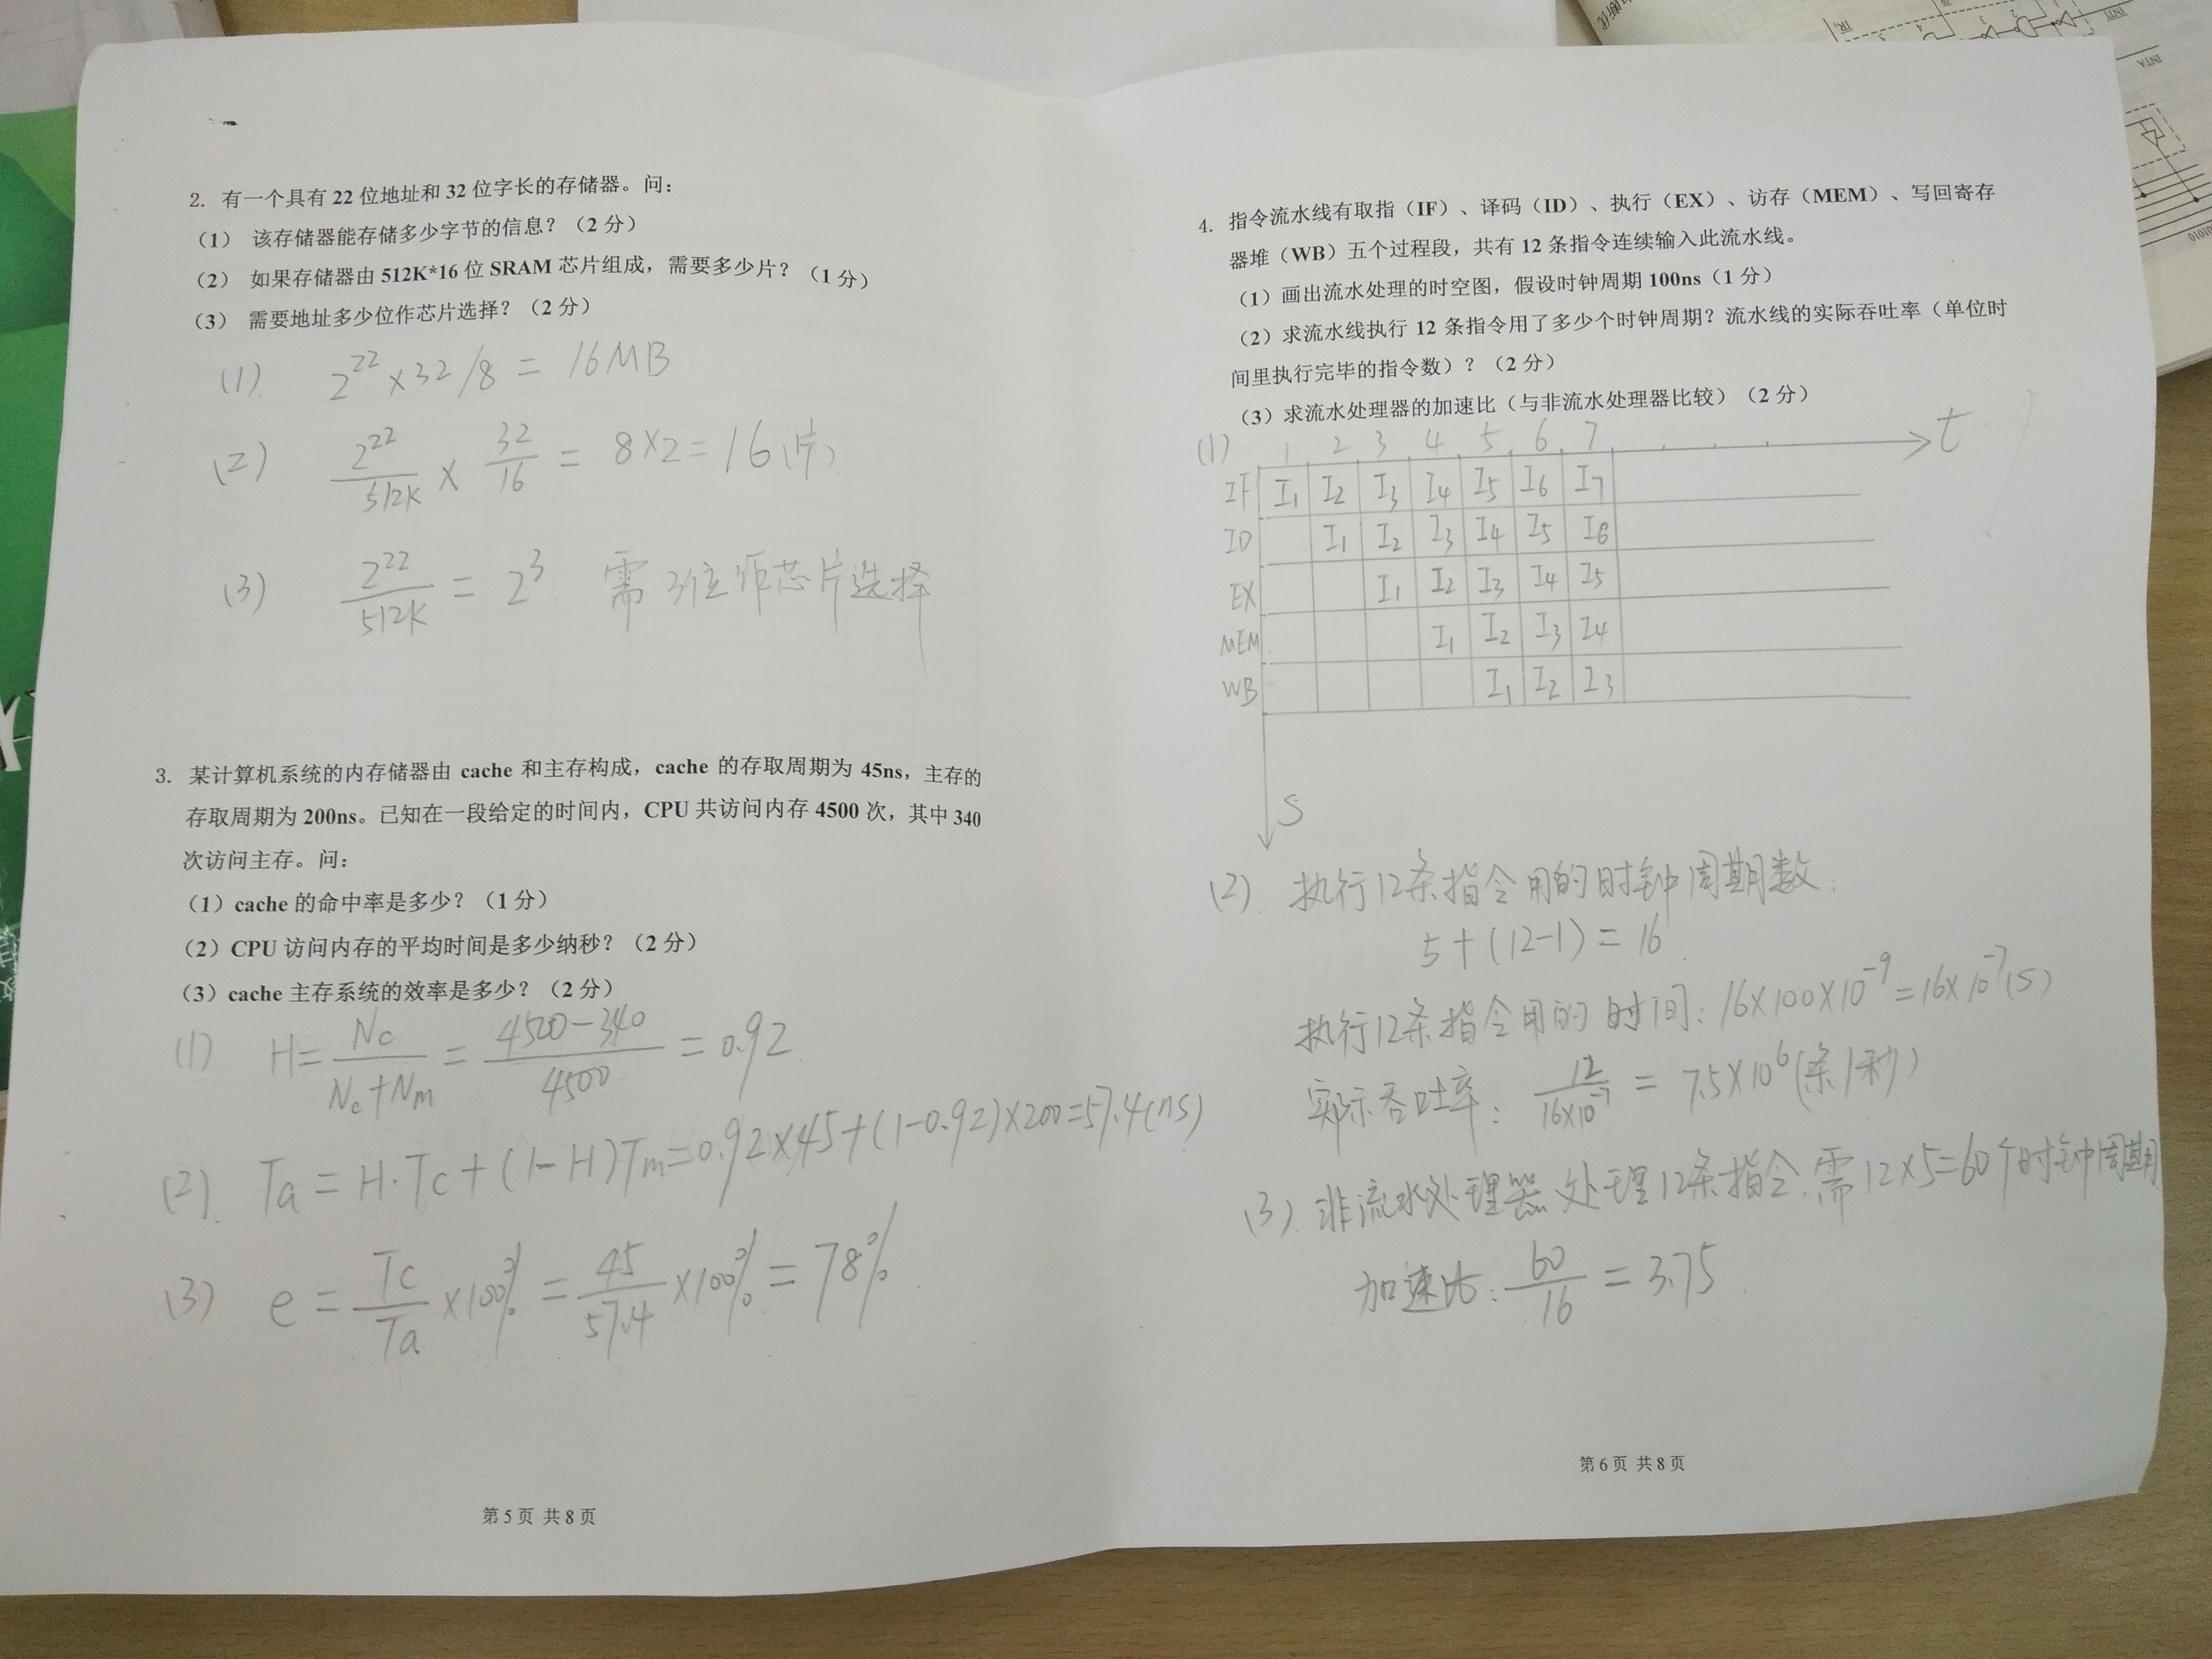 2. 有一个具有 22 位地址和 32 位字长的存储器。问：
（1） 该存储器能存储多少字节的信息？（2 分）
（2） 如果存储器由 512K*16 位 SRAM 芯片组成，需要多少片？（1 分）
（3） 需要地址多少位作芯片选择？（2 分）
(1). 2^22 ×32/8 = 16MB
(2) 2^22/512K × 32/16 = 8×2=16(片)
(3) 2^22/512K = 2^3. 需3位作芯片选择
3. 某计算机系统的内存储器由 cache 和主存构成，cache 的存取周期为 45ns，主存的
存取周期为 200ns。已知在一段给定的时间内，CPU 共访问内存 4500 次，其中 340
次访问主存。问：
（1）cache 的命中率是多少？（1 分）
（2）CPU 访问内存的平均时间是多少纳秒？（2 分）
（3）cache 主存系统的效率是多少？（2 分）
(1) H= Nc/Nc+Nm = 4500-340/4500 = 0.92
(2). Ta = H·Tc+(1-H)Tm=0.92×45+(1-0.92)×200=57.4(ns)
(3) e = Tc/Ta ×100% = 45/57.4 ×100% = 78%
第 5 页 共 8 页
4. 指令流水线有取指（IF）、译码（ID）、执行（EX）、访存（MEM）、写回寄存
器堆（WB）五个过程段，共有 12 条指令连续输入此流水线。
（1）画出流水处理的时空图，假设时钟周期 100ns（1 分）
（2）求流水线执行 12 条指令用了多少个时钟周期？流水线的实际吞吐率（单位时
间里执行完毕的指令数）？（2 分）
（3）求流水处理器的加速比（与非流水处理器比较）（2 分）
(1) 1 2 3 4 5 6 7 . . . t
IF I1 I2 I3 I4 I5 I6 I7
ID I1 I2 I3 I4 I5 I6
EX I1 I2 I3 I4 I5
MEM I1 I2 I3 I4
WB I1 I2 I3
S
(2). 执行12条指令用的时钟周期数：
5+(12-1)=16
执行12条指令用的时间：16×100×10^-9=16×10^-7(S)
实际吞吐率：12/16×10^-7 = 7.5×10^6(条/秒)
(3). 非流水处理器处理12条指令需12×5=60个时钟周期
加速比：60/16 = 3.75
第 6 页 共 8 页
INTA